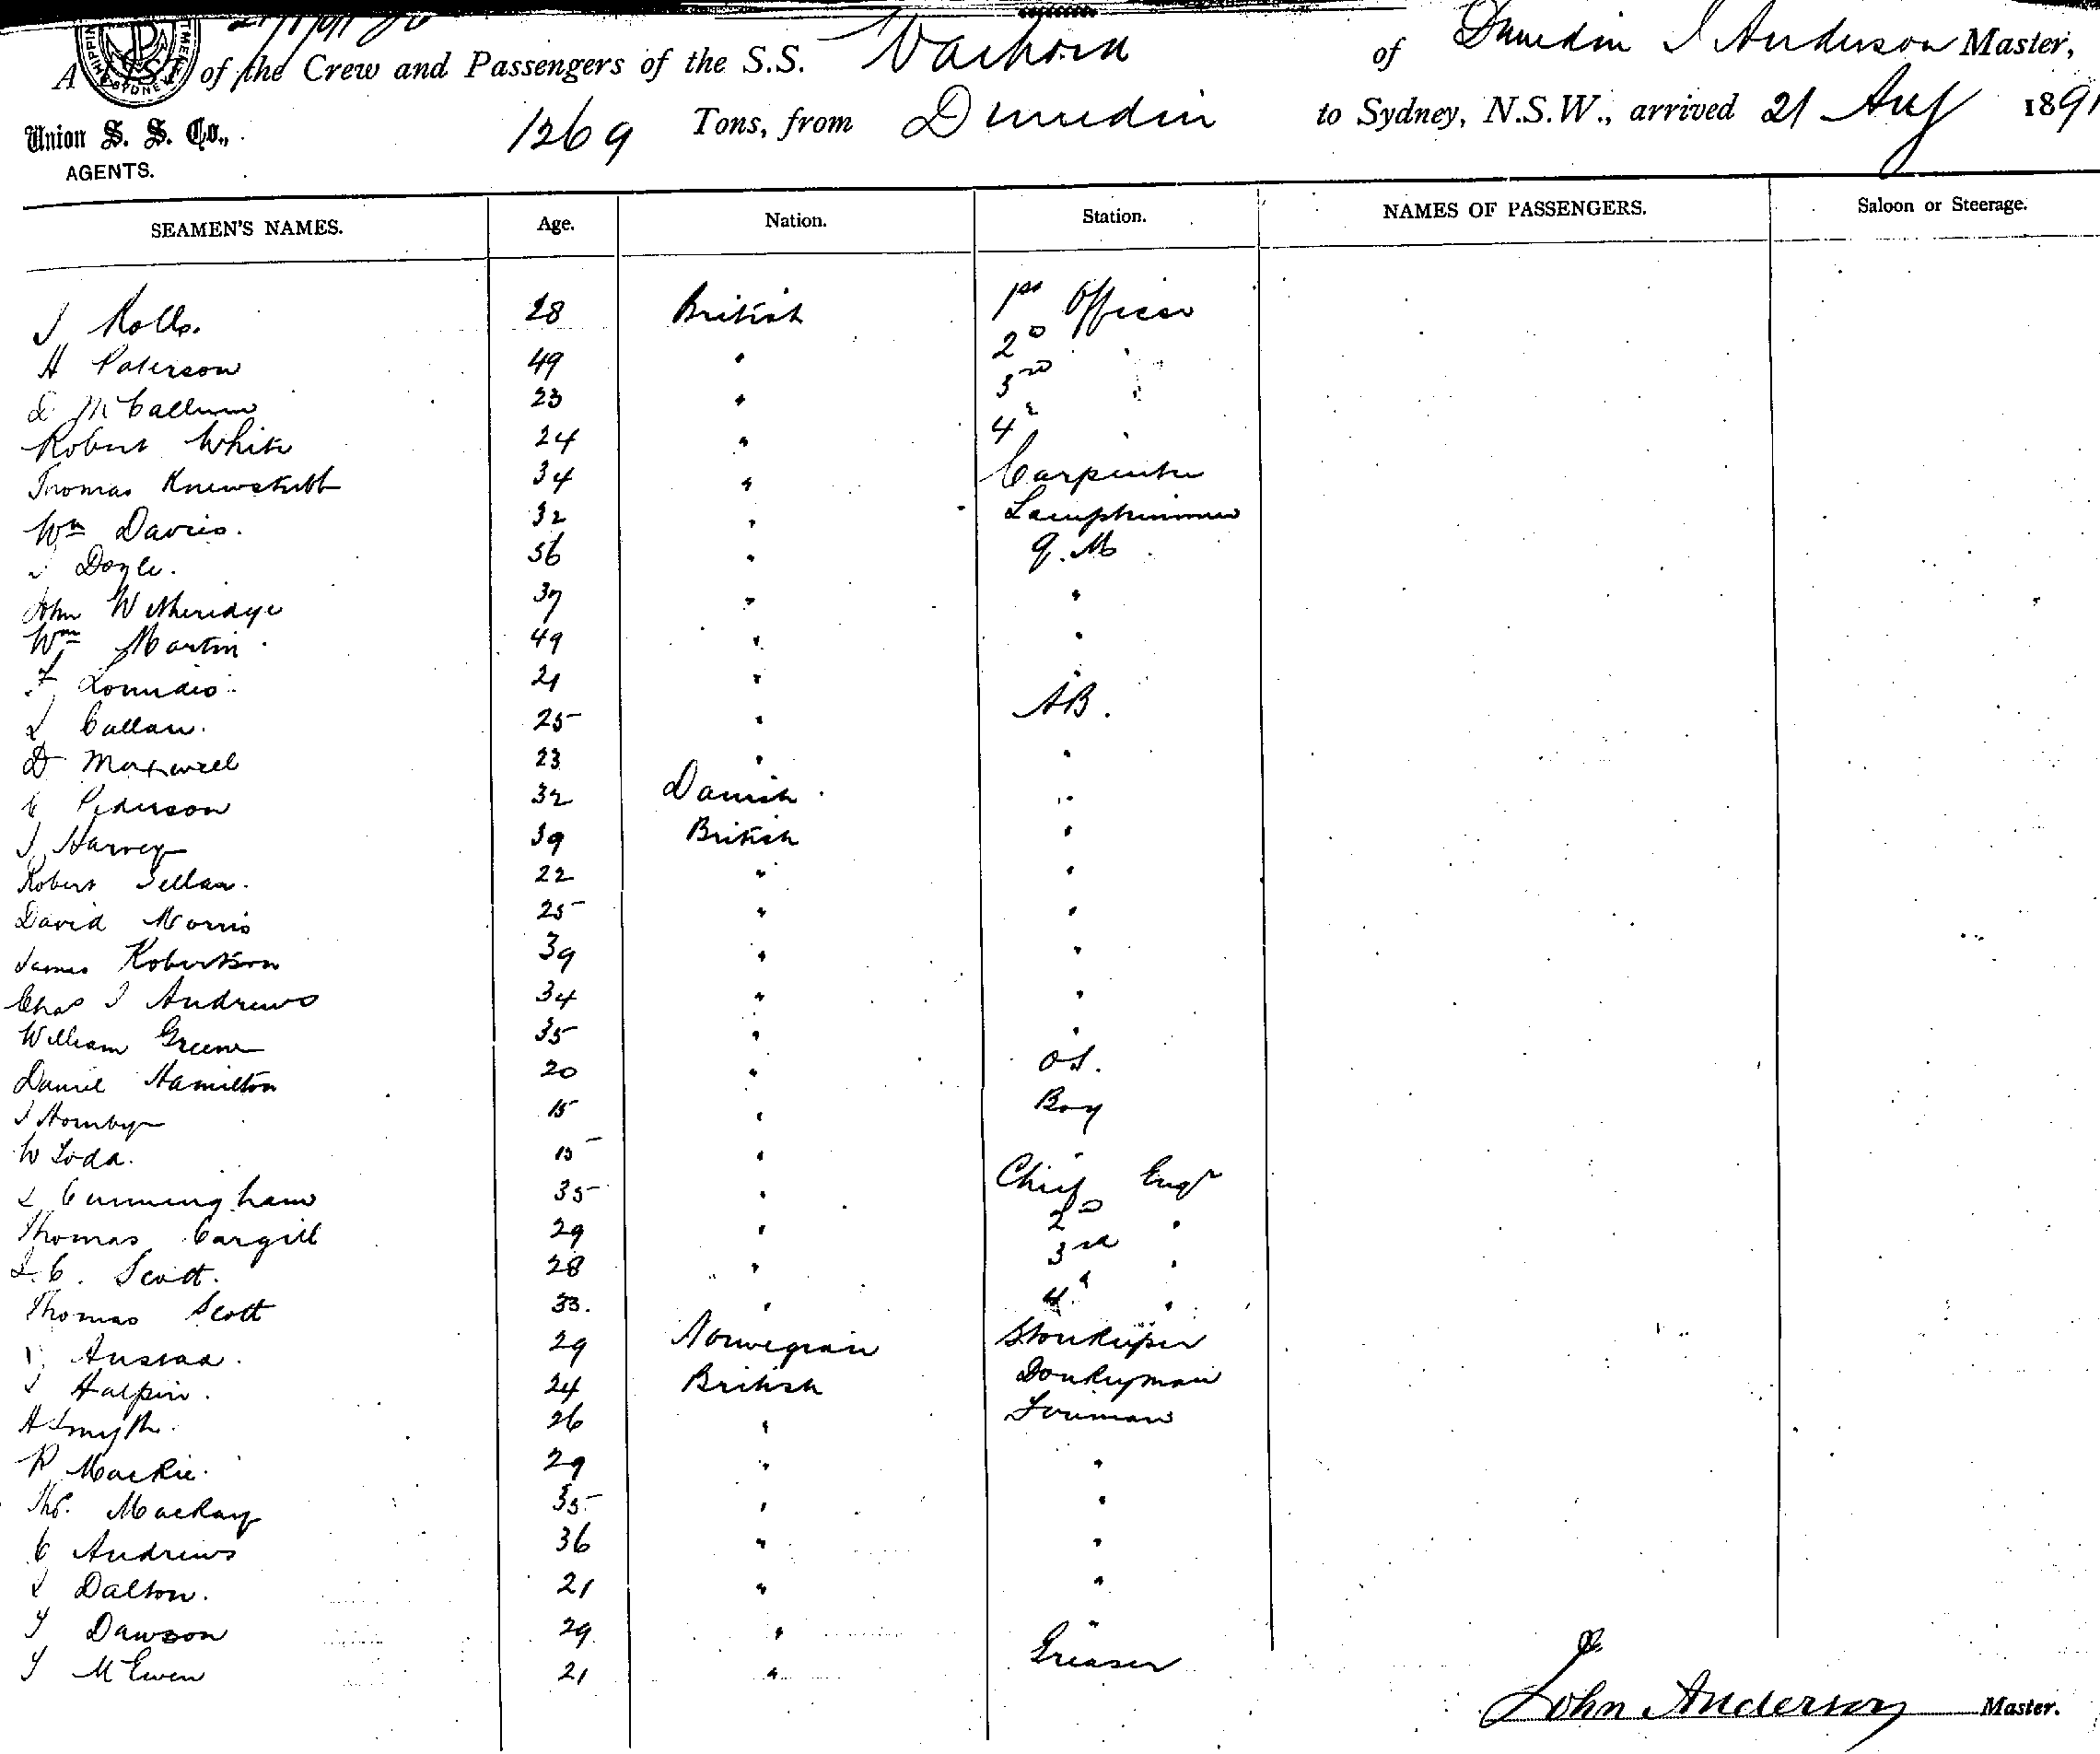 A LIST of the Crew and Passengers of the S.S. Waihora of Dunedin J Anderson Master,
Union S. S. Co., 1269 Tons, from Dunedin to Sydney, N.S.W., arrived 21 Aug 1891
AGENTS.
SEAMEN'S NAMES. Age. Nation. Station. NAMES OF PASSENGERS. Saloon or Steerage.
J Rolls. 28 British 1st Officer
H Paterson 49 " 2D "
D McCallum 23 " 3rd "
Robert White 24 " 4th "
Thomas Knewstubb 34 " Carpenter
Wm Davies. 32 " Lamptrimmer
J Doyle. 36 " Q.M
John Witheridge 37 " "
Wm Martin 49 " "
F 21 " "
J Callan. 25 " AB.
D Maxwell 23 " "
C Pederson 32 Danish "
J Harvey 39 British "
Robert Sellan. 22 " "
David Morris 25 " "
James Robertson 39 " "
Chas J Andrews 34 " "
William Greene 35 " "
Daniel Hamilton 20 " OS.
J Hornby 15 " Boy
W Loda. 15 " "
J Cunningham 35 " Chief Engr
Thomas Cargill 29 " 2D "
J.C. Scott. 28 " 3rd "
Thomas Scott 33. " 4th "
29 Norwegian Storekeeper
J Halpin. 24 British Donkeyman
H Smyth. 26 " Fireman
R Mackie. 29 " "
Thos. Mackay 35 " "
C Andrews 36 " "
J Dalton. 21 " "
J Dawson 29 " "
J McEwen 21 " Greaser
John Anderson Master.